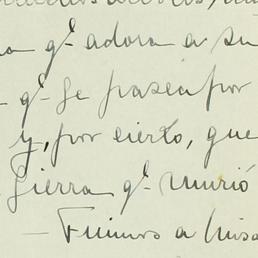 qᵉ adora a su
qᵉ se pasea por
y, por cierto, que
Sierra qᵉ murió
— Fuimos a misa